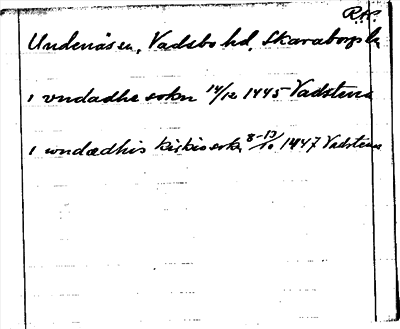 R.A.
Undenäs sn, Vadsbo hd, Skaraborgs l.
i vndadhe sokn 14/12 1445 Vadstena
i wndædhis kirkiosokn 8-13/10 1447 Vadstena